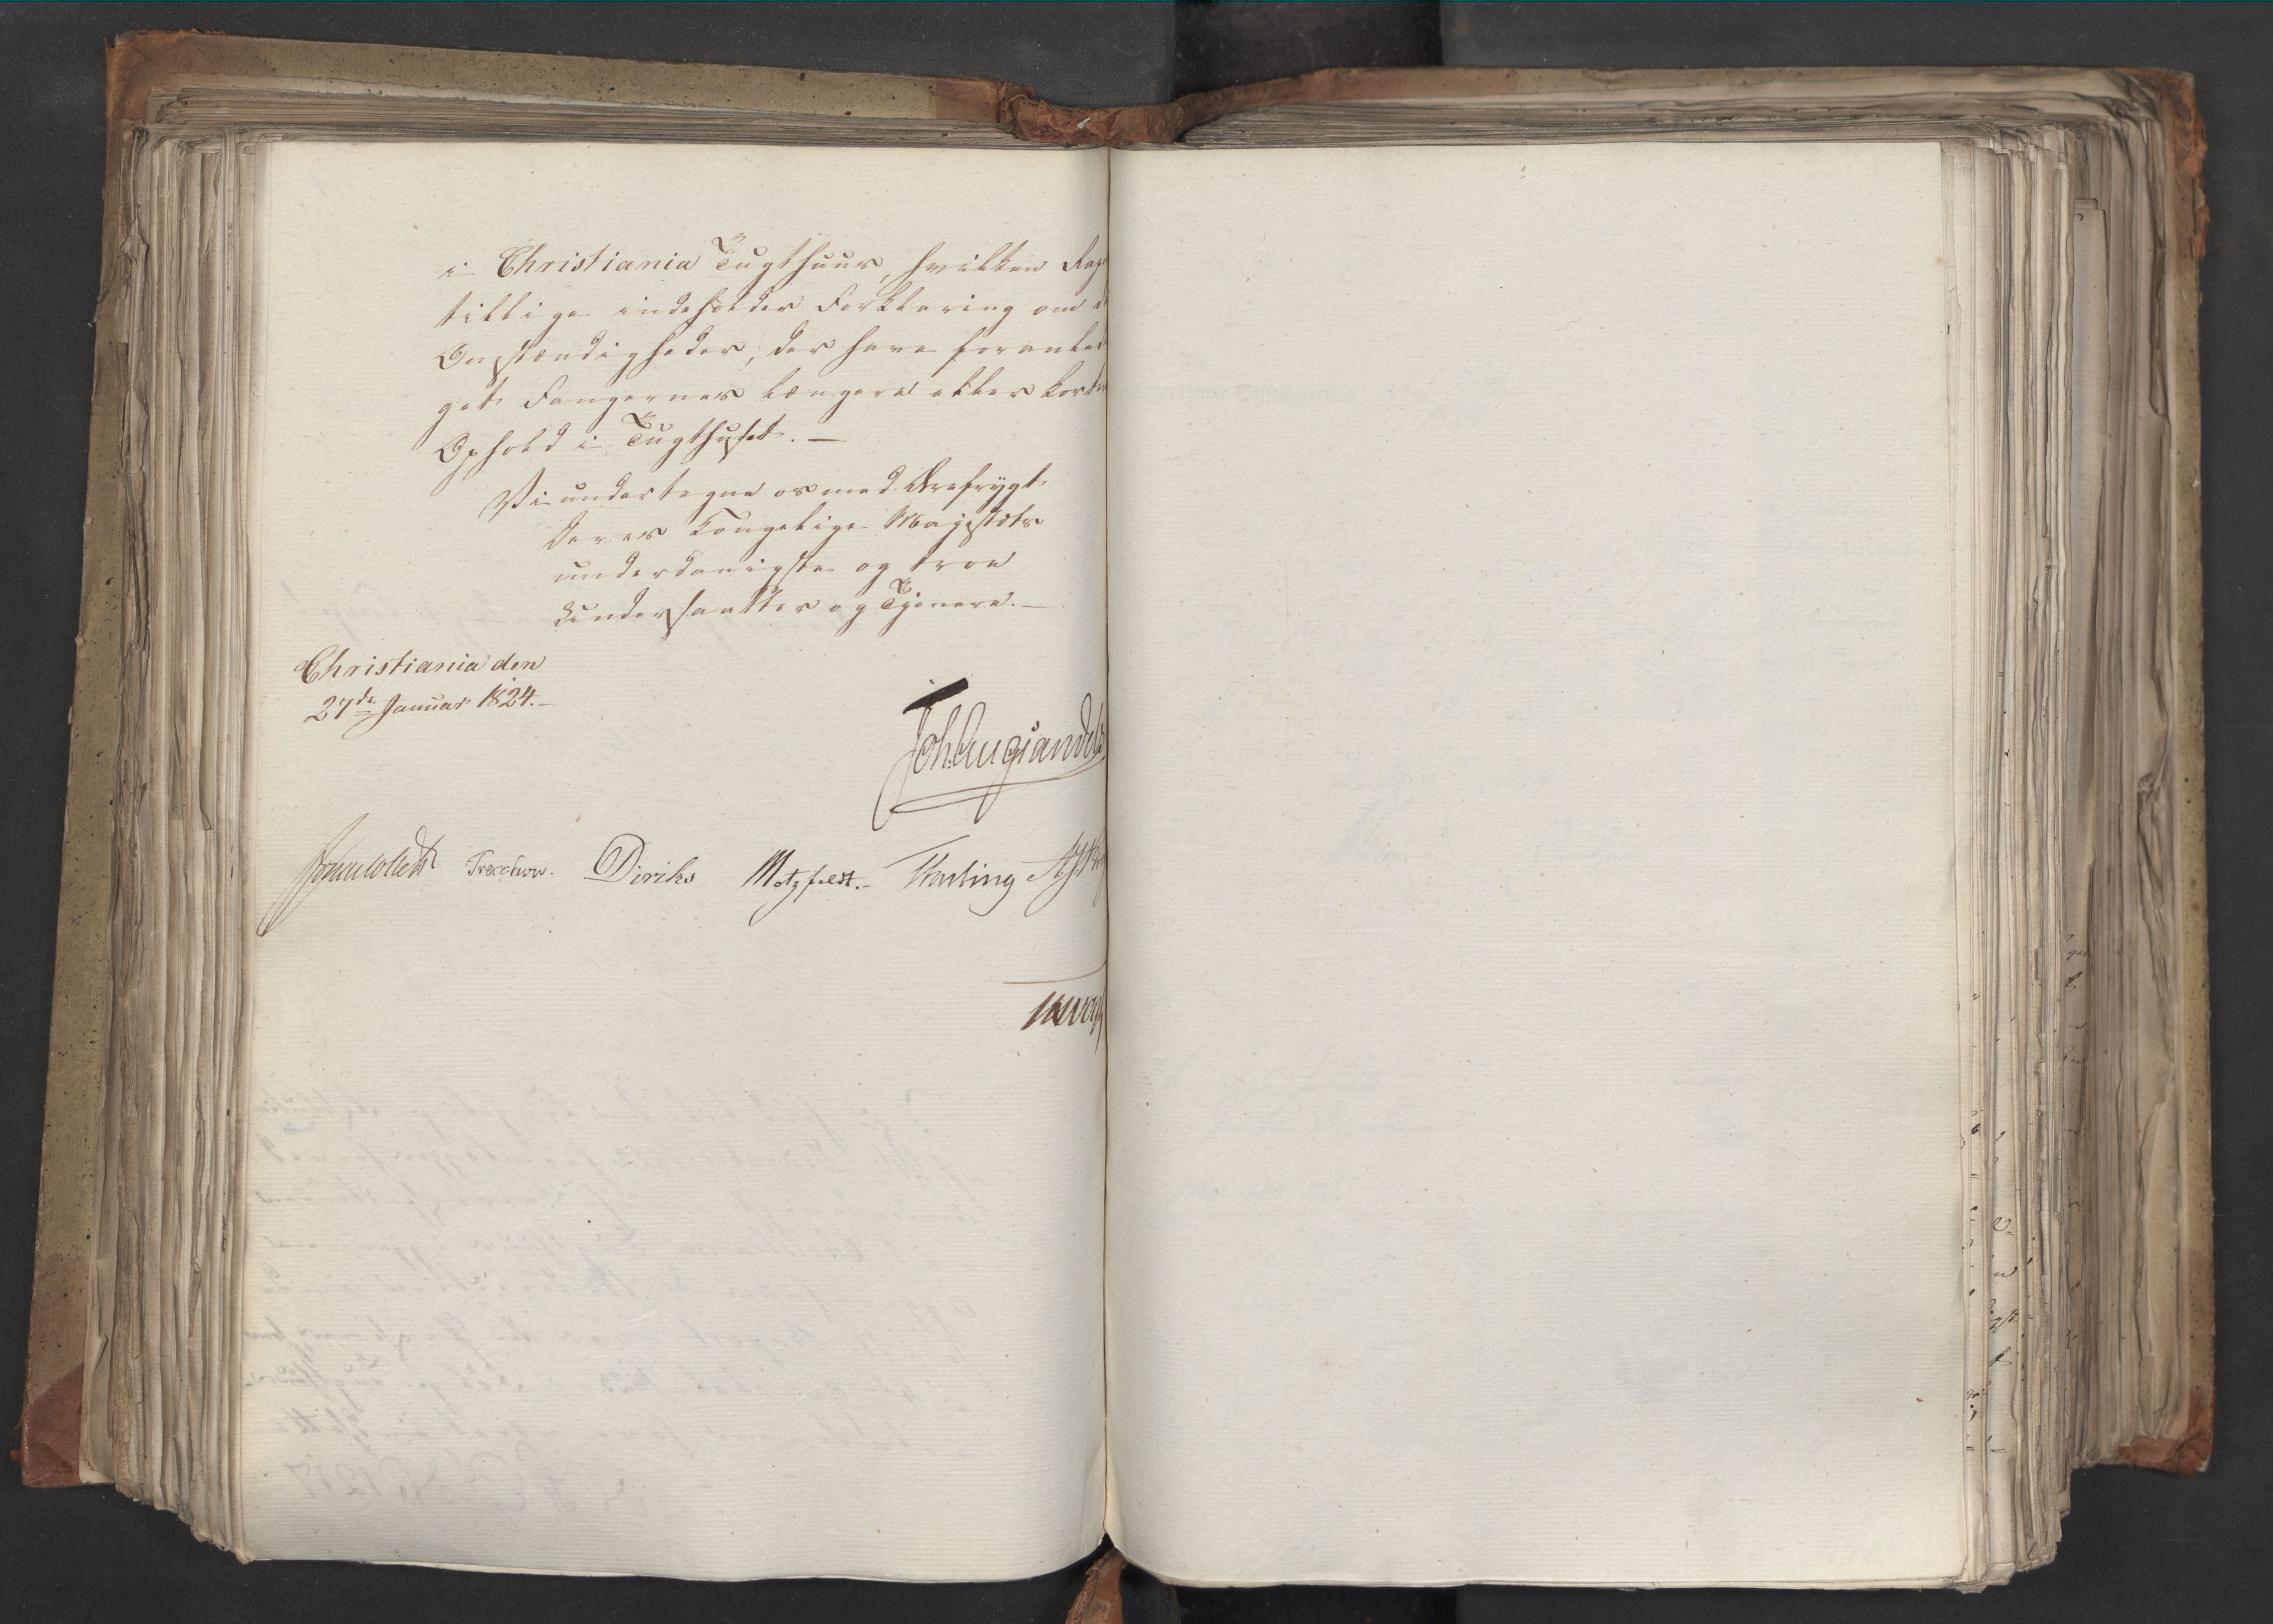 i Christiania Tugthuus, hvilken Rap
tillige indeholder Forklaring om d
Omstændigheder, der have foranled
get Fangernes længere eller kort
Ophold i Tugthuset. —
Vi undertegne os med Ærefrygt
Deres Kongelige Majestæts
underdanigste og troe
Undersaatter og Tjenere. —
Christiania den
27de Januar 1824. —
Joh. Aug. Sandels
Jonas Collett Treschow. Diriks Motzfeldt. — Fasting